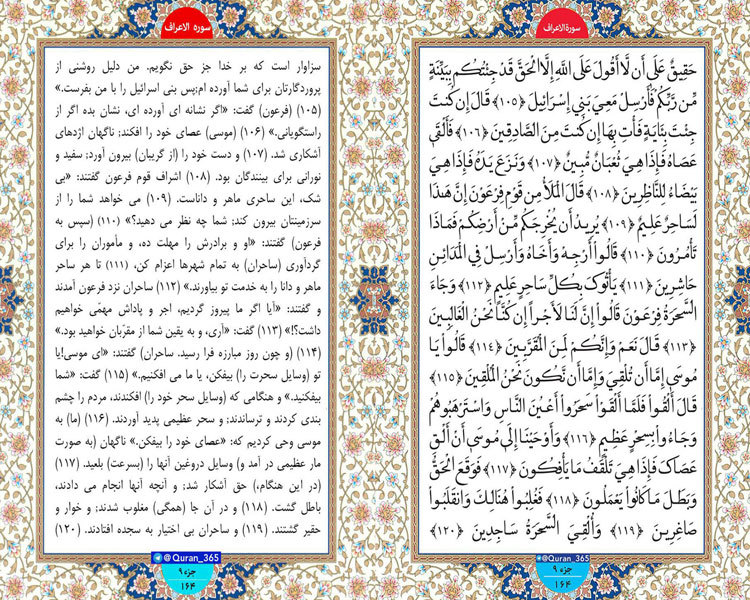 سورة الاعراف
حَقِيقٌ عَلَىٰ أَن لَّا أَقُولَ عَلَى اللَّهِ إِلَّا الْحَقَّ قَدْ جِئْتُكُم بِبَيِّنَةٍ
مِّن رَّبِّكُمْ فَأَرْسِلْ مَعِيَ بَنِي إِسْرَائِيلَ ﴿۱۰۵﴾ قَالَ إِن كُنتَ
جِئْتَ بِآيَةٍ فَأْتِ بِهَا إِن كُنتَ مِنَ الصَّادِقِينَ ﴿۱۰۶﴾ فَأَلْقَىٰ
عَصَاهُ فَإِذَا هِيَ ثُعْبَانٌ مُّبِينٌ ﴿۱۰۷﴾ وَنَزَعَ يَدَهُ فَإِذَا هِيَ
بَيْضَاءُ لِلنَّاظِرِينَ ﴿۱۰۸﴾ قَالَ الْمَلَأُ مِن قَوْمِ فِرْعَوْنَ إِنَّ هَٰذَا
لَسَاحِرٌ عَلِيمٌ ﴿۱۰۹﴾ يُرِيدُ أَن يُخْرِجَكُم مِّنْ أَرْضِكُمْ فَمَاذَا
تَأْمُرُونَ ﴿۱۱۰﴾ قَالُوا أَرْجِهْ وَأَخَاهُ وَأَرْسِلْ فِي الْمَدَائِنِ
حَاشِرِينَ ﴿۱۱۱﴾ يَأْتُوكَ بِكُلِّ سَاحِرٍ عَلِيمٍ ﴿۱۱۲﴾ وَجَاءَ
السَّحَرَةُ فِرْعَوْنَ قَالُوا إِنَّ لَنَا لَأَجْرًا إِن كُنَّا نَحْنُ الْغَالِبِينَ
﴿۱۱۳﴾ قَالَ نَعَمْ وَإِنَّكُمْ لَمِنَ الْمُقَرَّبِينَ ﴿۱۱۴﴾ قَالُوا يَا
مُوسَىٰ إِمَّا أَن تُلْقِيَ وَإِمَّا أَن نَّكُونَ نَحْنُ الْمُلْقِينَ ﴿۱۱۵﴾
قَالَ أَلْقُوا فَلَمَّا أَلْقَوْا سَحَرُوا أَعْيُنَ النَّاسِ وَاسْتَرْهَبُوهُمْ
وَجَاءُوا بِسِحْرٍ عَظِيمٍ ﴿۱۱۶﴾ وَأَوْحَيْنَا إِلَىٰ مُوسَىٰ أَنْ أَلْقِ
عَصَاكَ فَإِذَا هِيَ تَلْقَفُ مَا يَأْفِكُونَ ﴿۱۱۷﴾ فَوَقَعَ الْحَقُّ
وَبَطَلَ مَا كَانُوا يَعْمَلُونَ ﴿۱۱۸﴾ فَغُلِبُوا هُنَالِكَ وَانقَلَبُوا
صَاغِرِينَ ﴿۱۱۹﴾ وَأُلْقِيَ السَّحَرَةُ سَاجِدِينَ ﴿۱۲۰﴾
@Quran_365
جزء ۹
۱۶۴
سوره الاعراف
سزاوار است که بر خدا جز حق نگویم. من دلیل روشنی از
پروردگارتان برای شما آورده ام؛پس بنی اسرائیل را با من بفرست.»
(۱۰۵) (فرعون) گفت: «اگر نشانه ای آورده ای، نشان بده اگر از
راستگویانی.» (۱۰۶) (موسی) عصای خود را افکند؛ ناگهان اژدهای
آشکاری شد. (۱۰۷) و دست خود را (از گریبان) بیرون آورد؛ سفید و
نورانی برای بینندگان بود. (۱۰۸) اشراف قوم فرعون گفتند: «بی
شک، این ساحری ماهر و داناست. (۱۰۹) می خواهد شما را از
سرزمینتان بیرون کند؛ شما چه نظر می دهید؟» (۱۱۰) (سپس به
فرعون) گفتند: «او و برادرش را مهلت ده، و مأموران را برای
گردآوری (ساحران) به تمام شهرها اعزام کن، (۱۱۱) تا هر ساحر
ماهر و دانا را به خدمت تو بیاورند.» (۱۱۲) ساحران نزد فرعون آمدند
و گفتند: «آیا اگر ما پیروز گردیم، اجر و پاداش مهمّی خواهیم
داشت؟!» (۱۱۳) گفت: «آری، و به یقین شما از مقرّبان خواهید بود.»
(۱۱۴) (و چون روز مبارزه فرا رسید. ساحران) گفتند: «ای موسی!یا
تو (وسایل سحرت را) بیفکن، یا ما می افکنیم.» (۱۱۵) گفت: «شما
بیفکنید.» و هنگامی که (وسایل سحر خود را) افکندند، مردم را چشم
بندی کردند و ترساندند؛ و سحر عظیمی پدید آوردند. (۱۱۶) (ما) به
موسی وحی کردیم که: «عصای خود را بیفکن.» ناگهان (به صورت
مار عظیمی در آمد و) وسایل دروغین آنها را (بسرعت) بلعید. (۱۱۷)
(در این هنگام،) حق آشکار شد؛ و آنچه آنها انجام می دادند،
باطل گشت. (۱۱۸) و در آن جا (همگی) مغلوب شدند؛ و خوار و
حقیر گشتند. (۱۱۹) و ساحران بی اختیار به سجده افتادند. (۱۲۰)
@Quran_365
جزء ۹
۱۶۴